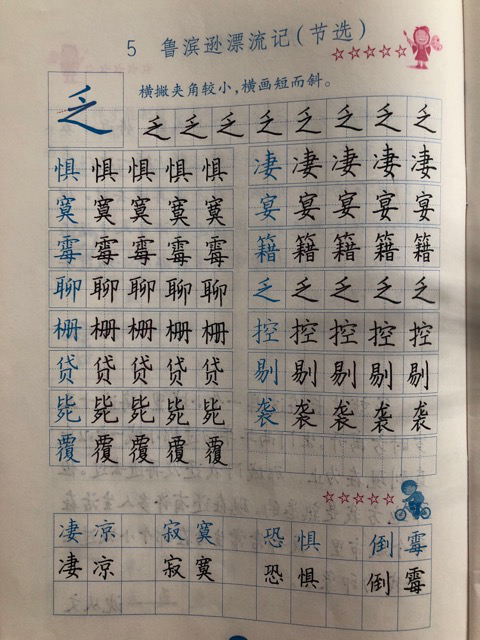 5 鲁滨逊漂流记(节选)
横撇夹角较小,横画短而斜。
乏 乏 乏 乏 乏 乏 乏 乏 乏
惧 惧 惧 惧 惧 凄 凄 凄 凄 凄
寞 寞 寞 寞 寞 宴 宴 宴 宴 宴
霉 霉 霉 霉 霉 籍 籍 籍 籍 籍
聊 聊 聊 聊 聊 乏 乏 乏 乏 乏
栅 栅 栅 栅 栅 控 控 控 控 控
贷 贷 贷 贷 贷 剔 剔 剔 剔 剔
毙 毙 毙 毙 毙 袭 袭 袭 袭 袭
覆 覆 覆 覆 覆
凄 凉 寂 寞 恐 惧 倒 霉
凄 凉 寂 寞 恐 惧 倒 霉